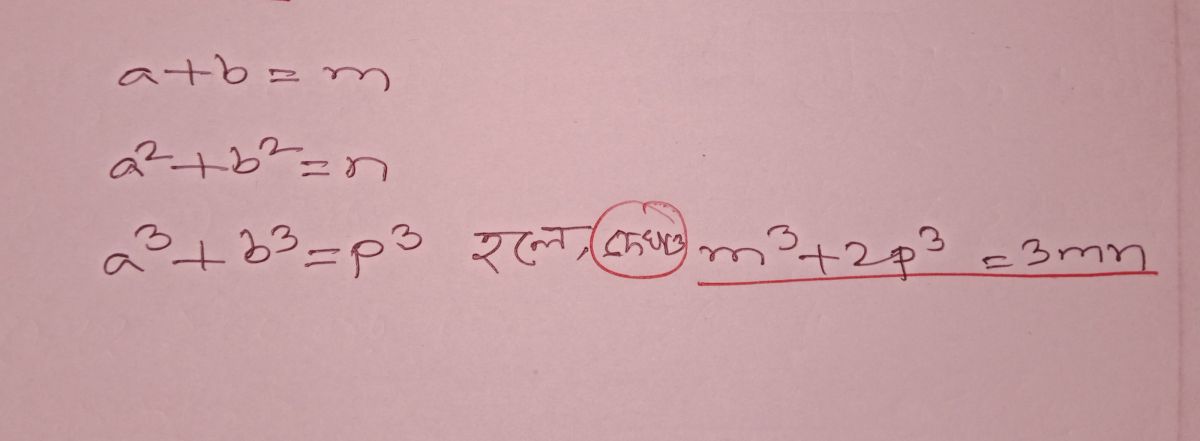 a+b = m
a²+b² = n
a³+b³ = p³ হলে, দেখাও m³+2p³ = 3mn